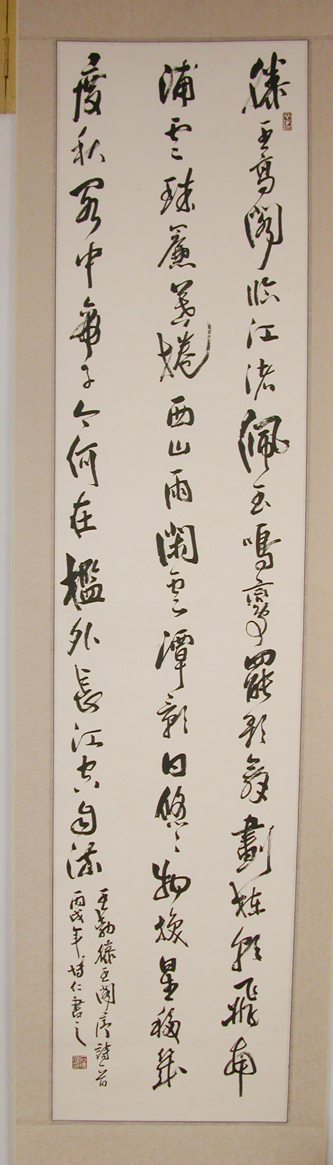 滕王高閣臨江渚佩玉鳴鸞罷歌舞畫棟朝飛南
浦雲珠簾暮捲西山雨閑雲潭影日悠々物換星移幾
度秋閣中帝子今何在檻外長江空自流
王勃滕王閣序詩一首
丙戌年仁書之